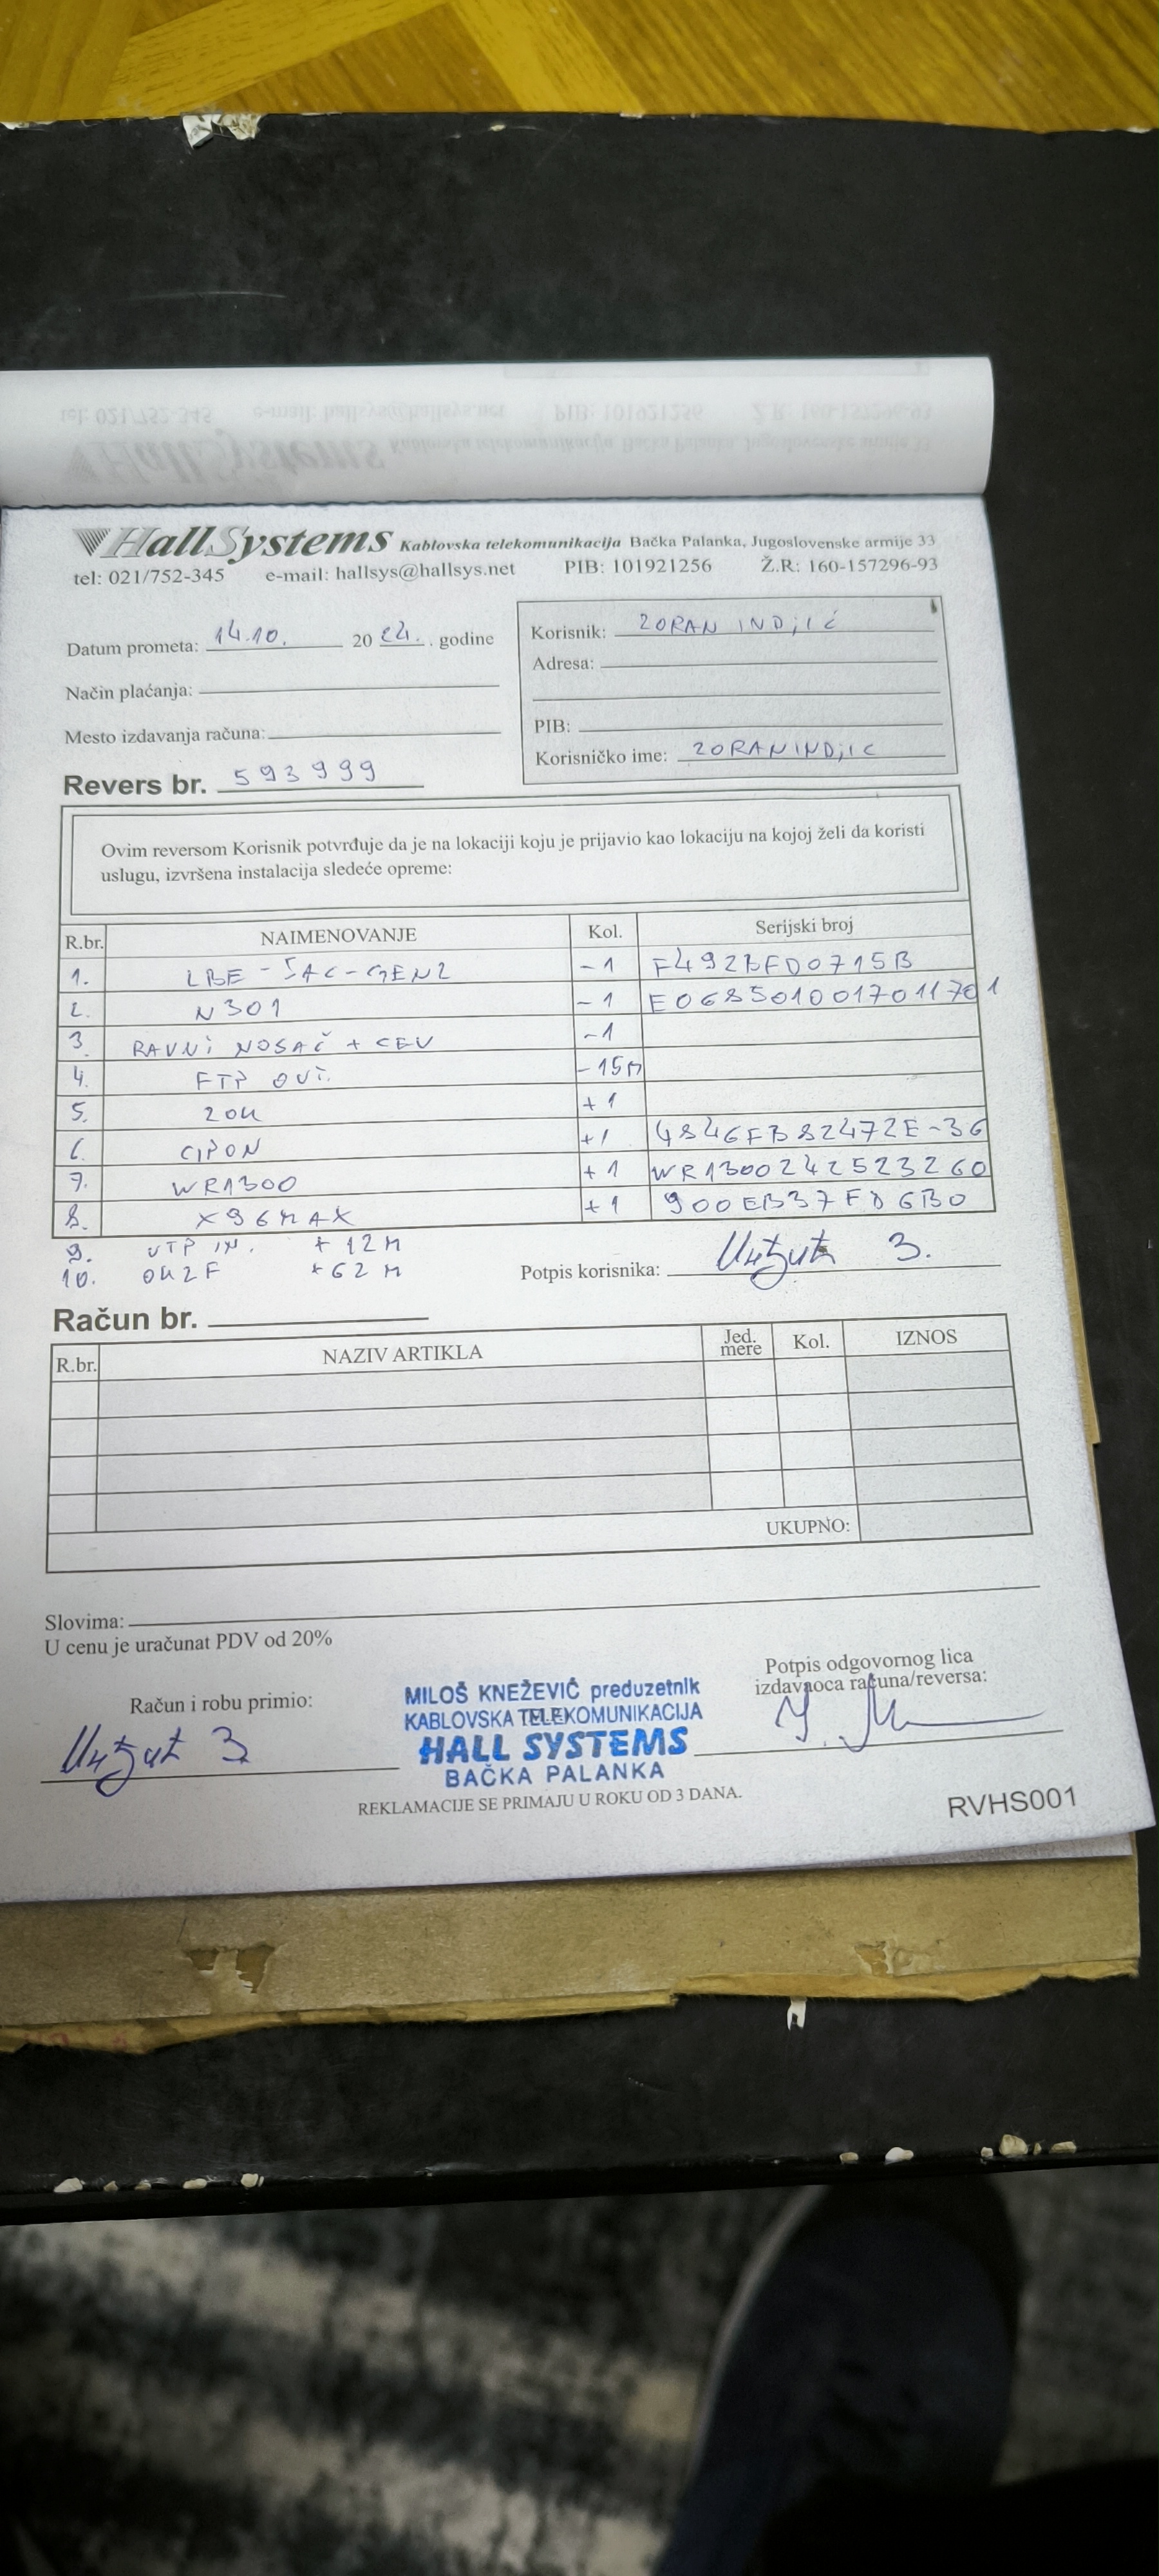 HallSystems Kablovska telekomunikacija Bačka Palanka, Jugoslovenske armije 33
tel: 021/752-345 e-mail: hallsys@hallsys.net PIB: 101921256 Ž.R: 160-157296-93
Datum prometa: 14.10. 20 24. . godine
Način plaćanja:
Mesto izdavanja računa:
Revers br. 593999
Korisnik: ZORAN INDjIĆ
Adresa:
PIB:
Korisničko ime: ZORANINDjIC
Ovim reversom Korisnik potvrđuje da je na lokaciji koju je prijavio kao lokaciju na kojoj želi da koristi
uslugu, izvršena instalacija sledeće opreme:
R.br. NAIMENOVANJE Kol. Serijski broj
1. LBE-5AC-GEN2 -1 F492BFD0715B
2. N301 -1 E0685010017011701
3. RAVNi NOSAČ + CEV -1
4. FTP OUT. -15M
5. ZOK +1
6. GPON +1 4846FB82472E-36
7. WR1300 +1 WR1300242523260
8. X96MAX +1 900EB37FD6B0
9. UTP IN. +12M
10. OK2F +62M
Potpis korisnika:
Račun br.
R.br. NAZIV ARTIKLA Jed. mere Kol. IZNOS
UKUPNO:
Slovima:
U cenu je uračunat PDV od 20%
Račun i robu primio:
MILOŠ KNEŽEVIĆ preduzetnik
KABLOVSKA TELEKOMUNIKACIJA
HALL SYSTEMS
BAČKA PALANKA
Potpis odgovornog lica
izdavaoca računa/reversa:
REKLAMACIJE SE PRIMAJU U ROKU OD 3 DANA.
RVHS001